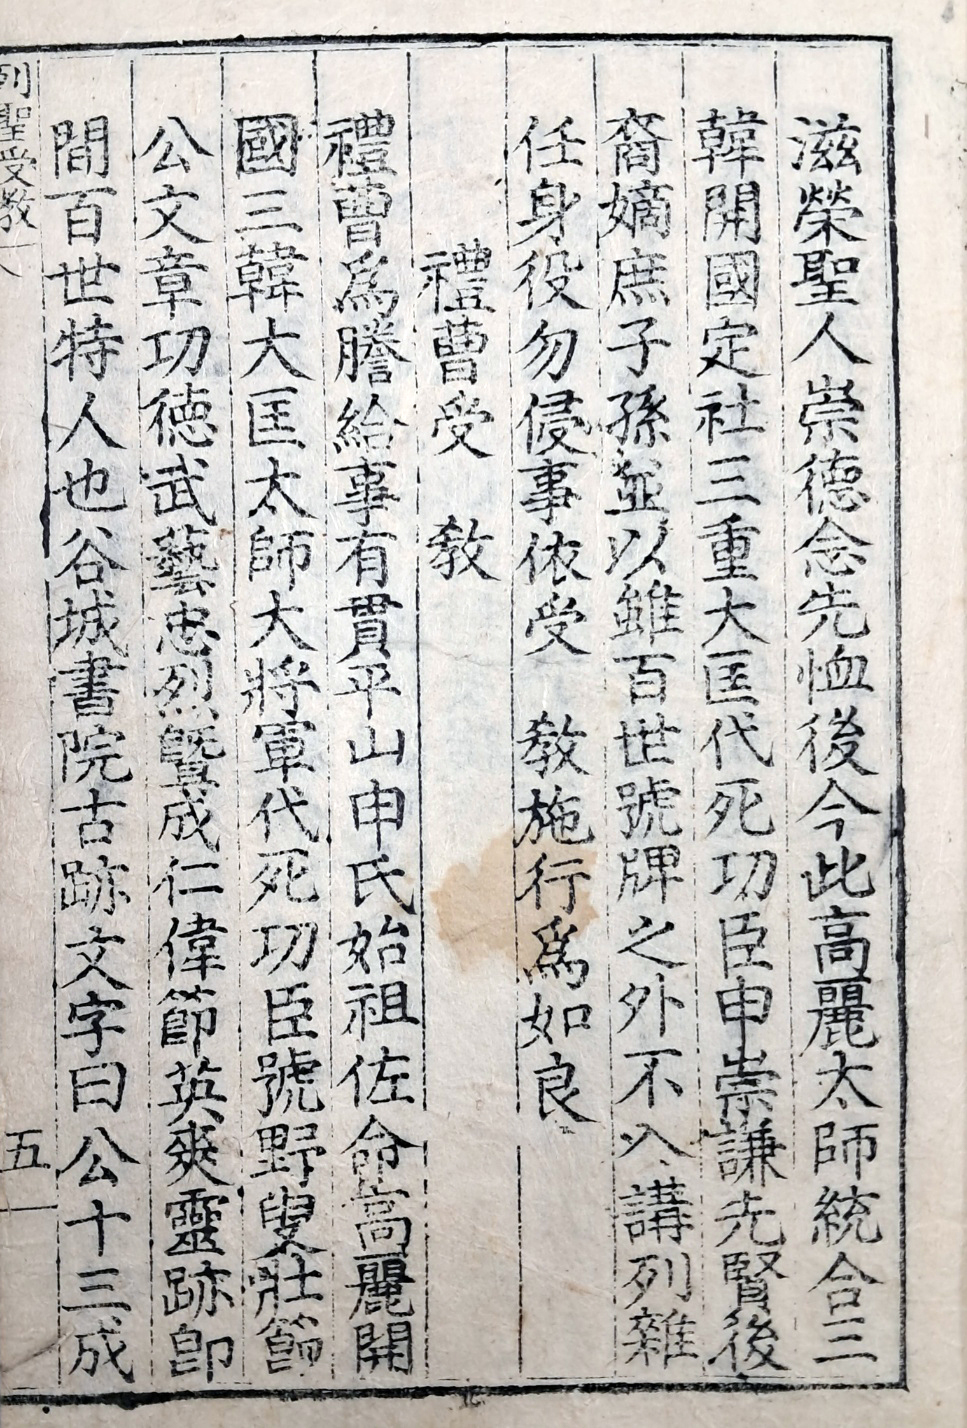 滋榮聖人崇德念先恤後今此高麗太師統合三
韓開國定社三重大匡代死功臣申崇謙先賢後
裔嫡庶子孫並以雖百世號牌之外不入講列雜
任身役勿侵事依受 敎施行爲如良
禮曹受 敎
禮曹爲謄給事有貫平山申氏始祖佐命高麗開
國三韓大匡太師大將軍代死功臣號野叟壯節
公文章功德武藝忠烈曁成仁偉節英爽靈跡卽
間百世特人也谷城書院古跡文字曰公十三成
列聖受敎
五